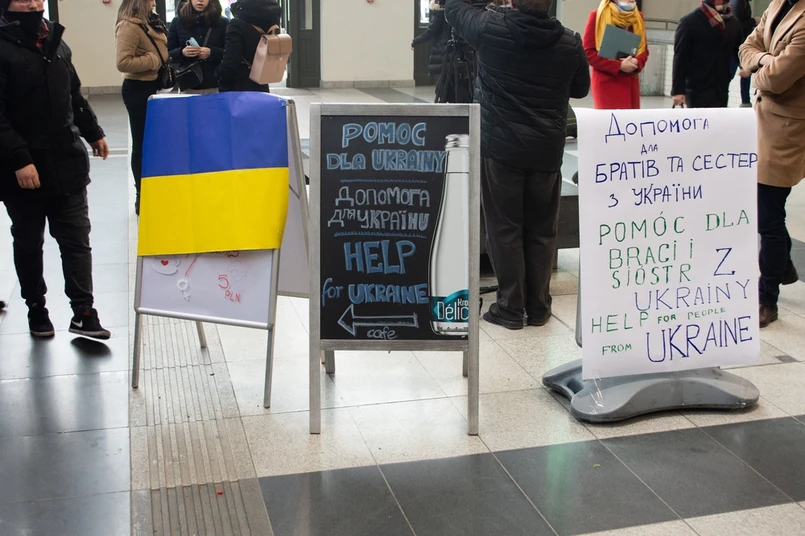 5
PLN
POMOC
DLA UKRAINY
ДОПОМОГА
для УКРАЇНИ
HELP
for UKRAINE
cafe
Délic
Допомога
для
БРАТІВ ТА СЕСТЕР
З УКРАЇНИ
POMÓC DLA
BRACI I
SIÓSTR Z
UKRAINY
HELP FOR PEOPLE
FROM UKRAINE